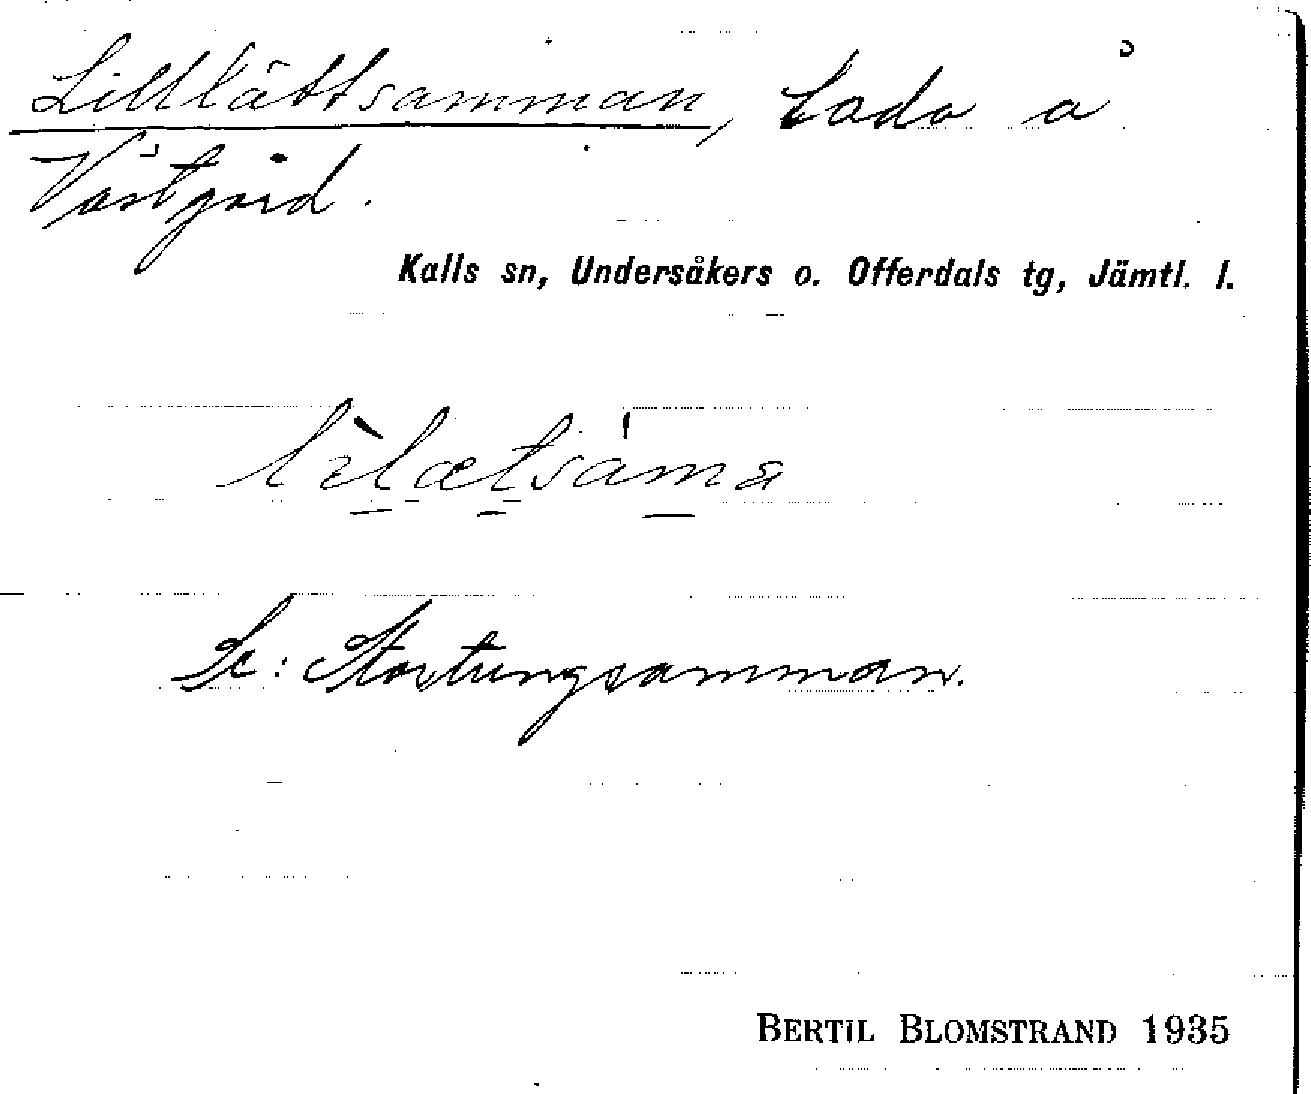 Lilllättsamman, Lada å
Västgård.
Kalls sn, Undersåkers o. Offerdals tg, Jämtl. l.
Se: Stortungsamman.
BERTIL BLOMSTRAND 1935